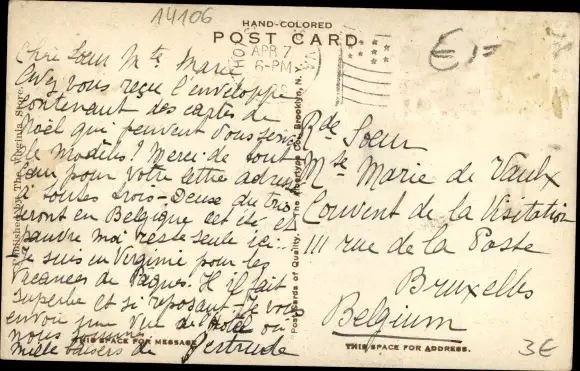 14106
HAND-COLORED
POST CARD
APR 7
6-PM
€1=
Chère Soeur Mte Marie
Avez vous reçu l'enveloppe
contenant des cartes de
Noël qui peuvent vous servir
de modèles? Merci de tout
pour votre lettre
toutes trois - Deux du trio
iront en Belgique cet été et
pauvre moi reste seule ici.
Je suis en Virginie pour les
vacances de Pâques. Il fait
superbe et si reposant. Je vous
envoie une vue de Hotel où
nous sommes
mille baisers de Gertrude
THIS SPACE FOR MESSAGE
Published for The Virginia Store
Postcards of Quality. The Albertype Co., Brooklyn, N.Y.
Rde Soeur
Mte Marie de Vaulx
Couvent de la Visitation
111 rue de la Poste
Bruxelles
Belgium
THIS SPACE FOR ADDRESS.
3€